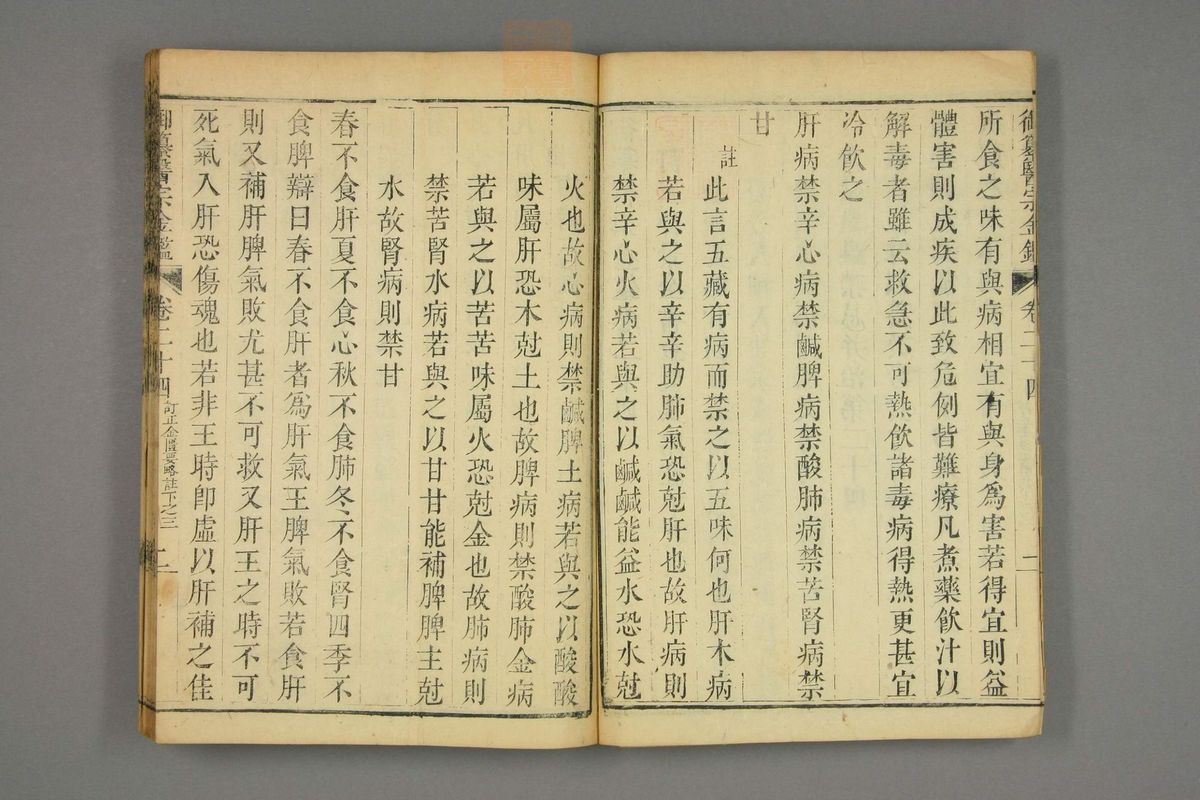 所食之味有與病相宜有與身為害若得宜則益
體害則成疾以此致危例皆難療凡煮藥飲汁以
解毒者雖云救急不可熱飲諸毒病得熱更甚宜
冷飲之
肝病禁辛心病禁鹹脾病禁酸肺病禁苦腎病禁
甘
註此言五藏有病而禁之以五味何也肝木病
若與之以辛辛助肺氣恐尅肝也故肝病則
禁辛心火病若與之以鹹鹹能益水恐水尅
火也故心病則禁鹹脾土病若與之以酸酸
味屬肝恐木尅土也故脾病則禁酸肺金病
若與之以苦苦味屬火恐尅金也故肺病則
禁苦腎水病若與之以甘甘能補脾脾主尅
水故腎病則禁甘
春不食肝夏不食心秋不食肺冬不食腎四季不
食脾辯曰春不食肝者為肝氣王脾氣敗若食肝
則又補肝脾氣敗尤甚不可救又肝王之時不可
死氣入肝恐傷魂也若非王時即虛以肝補之佳
御纂醫宗金鑑 卷二十四 訂正金匱要略註下之三 二